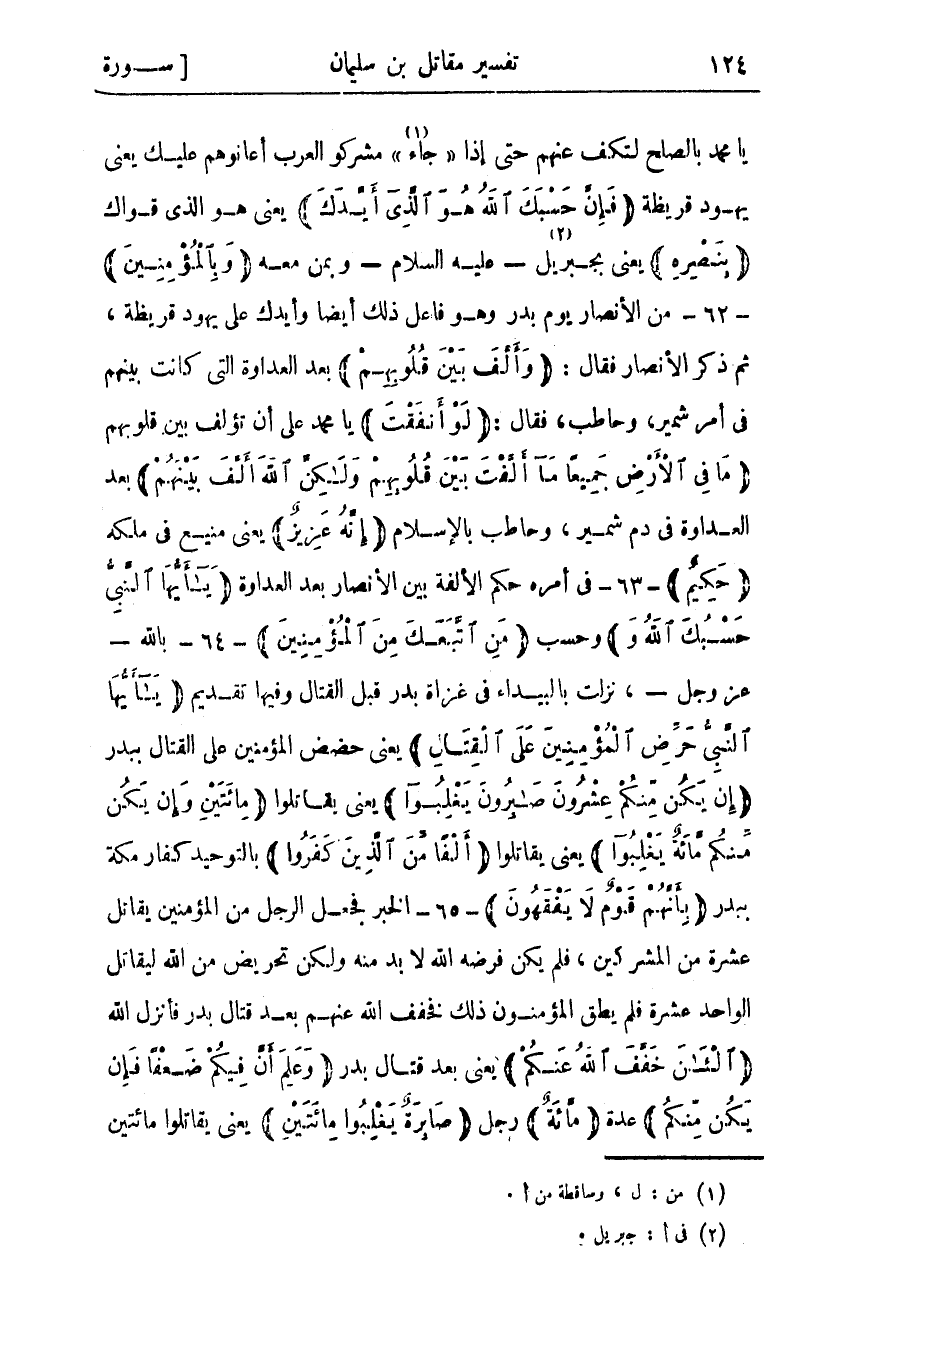 ١٢٤ تفسير مقاتل بن سليمان [ ســورة
يا محمد بالصلح لتكف عنهم حتى إذا « جاء » (١) مشركو العرب أعانوهم عليـك يعنى
يهـود قريظة ( فَإِنَّ حَسْبَكَ ٱللَّهُ هُـوَ ٱلَّذِىٓ أَيَّـدَكَ ) يعنى هـو الذى قـواك
( بِنَصْرِهِ ) يعنى بجـبريل (٢) — عليـه السلام — و بمن معـه ( وَبِٱلْمُؤْمِنِـينَ )
– ٦٢ – من الأنصار يوم بدر وهـو فاعل ذلك أيضا وأيدك على يهود قريظة ،
ثم ذكر الأنصار فقال : ( وَأَلَّفَ بَيْنَ قُلُوبِهِـمْ ) بعد العداوة التى كانت بينهم
فى أمر شمير، وحاطب، فقال :( لَوْ أَنفَقْتَ ) يا محمد على أن تؤلف بين قلوبهم
( مَا فِى ٱلْأَرْضِ جَمِيعًا مَآ أَلَّفْتَ بَيْنَ قُلُوبِهِمْ وَلَـٰكِنَّ ٱللَّهَ أَلَّفَ بَيْنَهُمْ ) بعد
العـداوة فى دم شمـير ، وحاطب بالإسـلام ( إِنَّهُ عَزِيزٌ ) يعنى منيـع فى ملكه
( حَكِيمٌ ) – ٦٣ – فى أمره حكم الألفة بين الأنصار بعد العداوة ( يَـٰٓأَيُّهَا ٱلنَّبِىُّ
حَسْـبُكَ ٱللَّهُ وَ ) وحسب ( مَنِ ٱتَّبَعَـكَ مِنَ ٱلْمُؤْمِنِينَ ) – ٦٤ – بالله —
عز وجل — ، نزلت بالبيـداء فى غـزاة بدر قبل القتال وفيها تقـديم ( يَـٰٓأَيُّهَا
ٱلنَّبِىُّ حَرِّضِ ٱلْمُؤْمِنِينَ عَلَى ٱلْقِتَـالِ ) يعنى حضض المؤمنين على القتال ببدر
( إِن يَـكُن مِّنكُمْ عِشْرُونَ صَـٰبِرُونَ يَغْلِبُـوٓا ) يعنى يقـاتلوا ( مِائَتَيْنِ وَإِن يَـكُن
مِّنكُم مِّائَةٌ يَغْلِبُوٓا ) يعنى يقاتلوا ( أَلْفًا مِّنَ ٱلَّذِينَ كَفَرُوا ) بالتوحيد كفار مكة
ببدر ( بِأَنَّهُمْ قَوْمٌ لَا يَفْقَهُونَ ) – ٦٥ – الخبر فجعـل الرجل من المؤمنين يقاتل
عشرة من المشركين ، فلم يكن فرضه الله لا بد منه ولكن تحريض من الله ليقاتل
الواحد عشرة فلم يطق المؤمنـون ذلك فخفف الله عنهـم بعـد قتال بدر فأنزل الله
( ٱلْـَٔـٰنَ خَفَّفَ ٱللَّهُ عَنـكُمْ ) يعنى بعد قتـال بدر ( وَعَلِمَ أَنَّ فِيكُمْ ضَـعْفًا فَإِن
يَـكُن مِّنكُم ) عدة ( مِّائَةٌ ) رجل ( صَابِرَةٌ يَغْلِبُوا مِائَتَيْنِ ) يعنى يقاتلوا مائتين
(١) من : ل ، وساقطة من أ .
(٢) فى أ : جبريل .